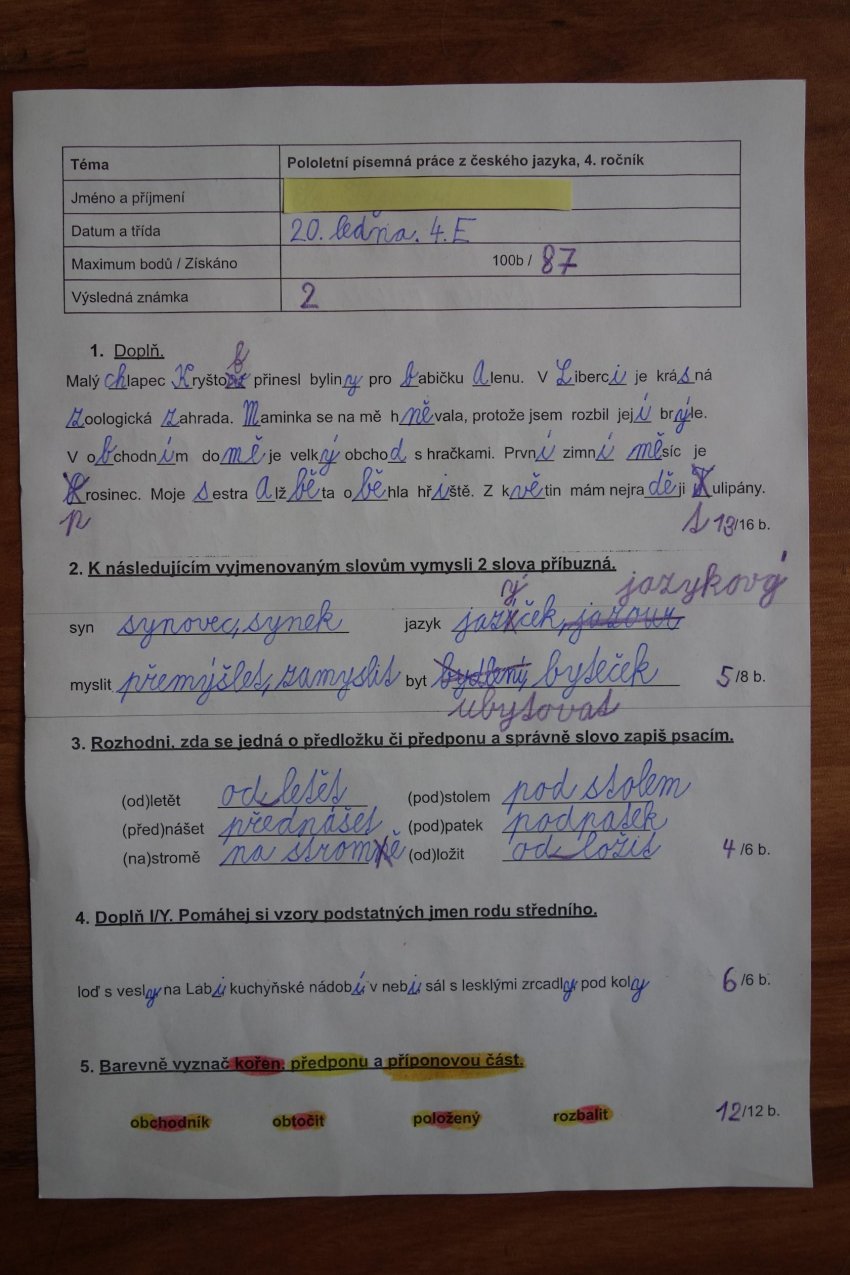 Téma Pololetní písemná práce z českého jazyka, 4. ročník
Jméno a příjmení
Datum a třída 20. ledňa. 4. E
Maximum bodů / Získáno 100b / 87
Výsledná známka 2
1. Doplň.
f
Malý chlapec Kryštof přinesl byliny pro babičku Alenu. V Liberci je krásná
zoologická zahrada. Maminka se na mě hněvala, protože jsem rozbil její brýle.
V obchodním domě je velký obchod s hračkami. První zimní měsíc je
prosinec. Moje sestra Alžběta oběhla hřiště. Z květin mám nejraději tulipány.
p t 13/16 b.
2. K následujícím vyjmenovaným slovům vymysli 2 slova příbuzná.
ý jazykový
syn synovec, synek jazyk jazíček, jazour
myslit přemýšlet, zamyslit byt bydlení, byteček 5/8 b.
ubytovat
3. Rozhodni, zda se jedná o předložku či předponu a správně slovo zapiš psacím.
(od)letět od letět (pod)stolem pod stolem
(před)nášet přednášet (pod)patek podpatek
(na)stromě na stromně (od)ložit od ložit 4/6 b.
4. Doplň I/Y. Pomáhej si vzory podstatných jmen rodu středního.
loď s vesly na Labi kuchyňské nádobí v nebi sál s lesklými zrcadly pod koly 6/6 b.
5. Barevně vyznač kořen, předponu a příponovou část.
obchodník obtočit položený rozbalit 12/12 b.